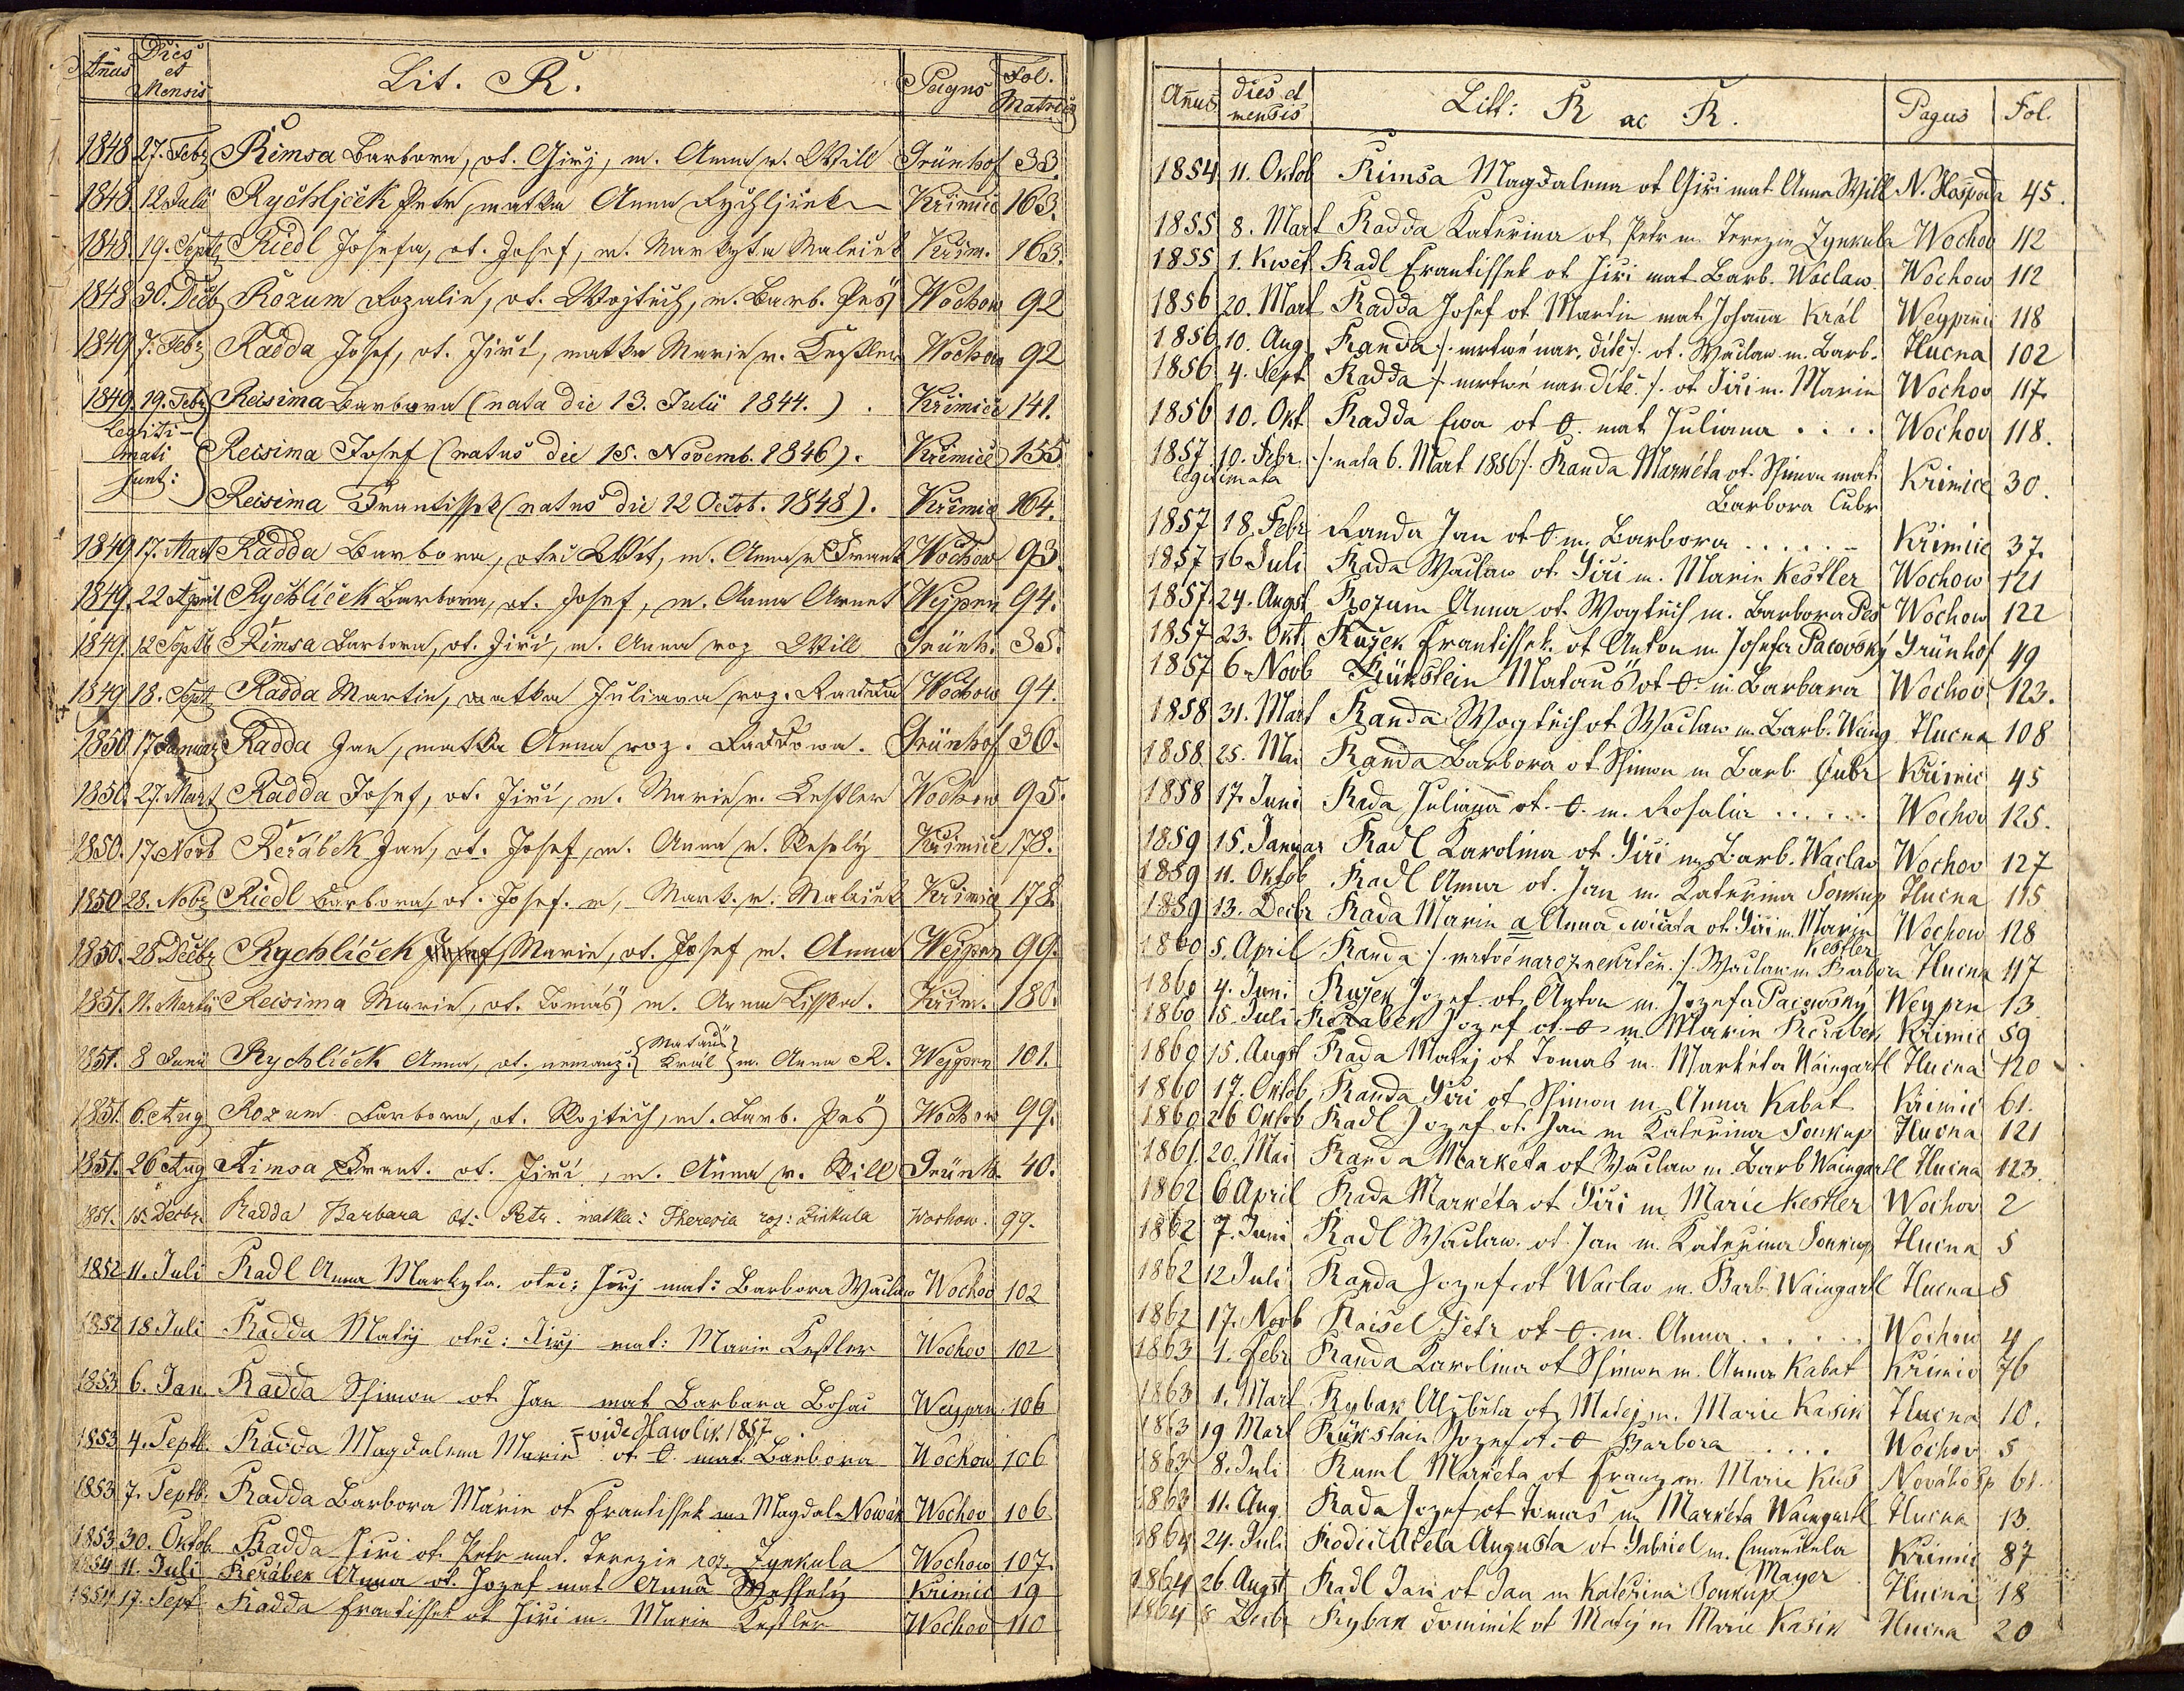 Añus Dies et Mensis Lit. R. Pagus Fol. Matricæ
1848 27. Febr Řimsa Barbora, ot. Girj, m. Anna r. Will Grünhof 33.
1848. 12 Julii Rychljček Petr, matka Anna Rychljček Křimic 163.
1848. 19. Septb Riedl Josefa, ot. Josef, m. Markyta Maleiček Křim. 163.
1848 30. Decb Rozum Rozalie, ot. Wojtěch, m. Barb. Peš Wochow 92
1849 7. Febr Radda Josef, ot. Jiří, matka Marie r. Kestler Wochow 92
1849. 19. Febr Reisima Barbora (nata die 13. Julii 1844.) . Křimice 141.
legiti-
mati Reisima Josef (natus die 15. Novemb. 1846). Křimice 155
sunt: Reisima Frantissek (natus die 12 Octob. 1848). Křimic 164.
1849 17. Mart Radda Barbora, otec Wit, m. Anna r. Frank Wochow 93.
1849. 22 April Rychlíček Barbora, ot. Josef, m. Anna Arnet Weypen 94.
1849. 12 Septb Řimsa Barbora, ot. Jiří, m. Anna roz Will Grünh. 35.
1849 18. Sept Radda Martin, matka Juliana roz. Radda Wochow 94.
1850. 17 Januar Radda Jan, matka Anna roz. Raddowa. Grünhof 36.
1850. 27. Mart Radda Josef, ot. Jiří, m. Marie r. Kestler Wochow 95.
1850. 17 Novb Řeřábek Jan, ot. Josef, m. Anna r. Weselý Křimice 178.
1850 28. Nobr Riedl Barbora, ot. Josef. m, Mark. r. Maleiček Křimic 178.
1850. 28 Decbr Rychlíček Marie, ot. Josef m. Anna Weypen 99.
1851. 11. Martii Reisima Marie, ot. Tomáš m. Anna Lisska. Křim. 180.
1851. 8 Junii Rychlíček Anna, ot. nemanž. {Matauš Král} m. Anna R. Weypen 101.
1851. 6. Aug Rozum Barbora, ot. Wojtěch, m. Barb. Peš Wochow 99.
1851. 26 Aug Řimsa Frant. ot. Jiří, m. Anna r. Will Grünh. 40.
1851. 15. Decbr. Radda Barbara ot: Petr. matka: Theresia roz: Zinkula Wochow. 99.
1852 11. Juli Radl Anna Markyta. otec: Jirj mat: Barbora Waclaw Wochov 102
1852 18 Juli Radda Matěj otec: Jirj mat: Marie Kestler Wochov 102
1853 6. Jan Radda Ssimon ot Jan mat Barbara Bohač Weypen 106
= vide Hawlik 1857
1853 4. Septb. Radda Magdalena Marie ot 0. mat Barbora Wochow 106
1853 7. Septb. Radda Barbora Marie ot Frantissek m Magdal. Nowák Wochov 106
1853 30. Oktob. Radda Jiri ot. Petr mat. Terezie roz. Zynkula Wochow 107.
1854 11. Juli Řeřábek Anna ot. Jozef mat Anna Wesselý Krimic 19
1854 17. Sept Radda Frantissek ot Jiri m. Marie Kestler Wochov 110
Añus dies et mensis Litt: R ac Ř. Pagus Fol.
1854 11. Oktob Rimsa Magdalena ot Giri mat Anna Will N. Hospoda 45.
1855 8. Mart Radda Katerina ot Petr m. Terezie Zynkula Wochov 112
1855 1. Kwět Radl Frantissek ot Jiri mat Barb. Waclaw Wochow 112
1856 20. Mart Radda Josef ot Martin mat Johaña Král Weyprnic 118
1856 10. Aug Randa /: mrtwé nar. dítě :/ ot. Waclaw m. Barb. Hucna 102
1856 4. Sept Radda /: mrtwé nar dítě :/. ot Jiri m. Marie Wochov 117.
1856 10. Okt Radda Ewa ot 0. mat Juliana . . . . Wochov 118.
1857 10. Febr. /: nata 6. Mart 1856 :/ Randa Markéta ot. Ssimon mat. Krimice 30.
legitimata Barbora Cubr
1857 18. Febr Randa Jan ot 0. m. Barbora . . . . . Krimice 37.
1857 16 Juli Rada Waclaw ot. Jiri m. Marie Kestler Wochow 121
1857. 24. Augst Rozum Anna ot. Wogtěch m. Barbora Pes Wochow 122
1857 23. Okt. Ružek Frantissek. ot Anton m. Josefa Pacovský Grünhof 49
1857 6. Novb Rükstein Matauš ot 0. m. Barbara Wochov 123.
1858 31. Mart Randa Wogtěch ot Waclaw m. Barb. Waing Hucna 108
1858 25. Mai Randa Barbora ot Ssimon m Barb. Cubr Krimic 45
1858 17. Juni Rada Juliaña ot. 0. m. Rosalia . . . . . Wochov 125.
1859 15. Januar Radl Karolina ot Jiri m Barb. Waclav Wochov 127
1859 11. Oktob Radl Anna ot. Jan m. Katerina Soukup Hucna 115
1859 13. Decbr Rada Marie a Anna dwičata ot Jiri m. Marie Kestler Wochow 128
1860 5. April Randa /: mrtvě naroz nekrten. :/ Waclaw m Barbora Hucna 117
1860 4. Juni Ružek Jozef ot. Anton m. Jozefa Pacovský Weyprn 13
1860 15. Juli Rerabek Jozef ot. 0 m Marie Rerabek Krimic 59
1860 15. Augst Rada Matej ot Tomaš m. Markéta Waingartl Hucna 120
1860 17. Oktob. Randa Jiri ot Ssimon m Anna Kabat Krimic 61.
1860 26 Oktob Radl Jozef ot. Jan m Katerina Soukup Hucna 121
1861 20. Mai Randa Markéta ot Waclaw m. Barb Waingartl Hucna 123.
1862 6 April Rada Markéta ot Jiri m Marie Kestler Wochov 2
1862 7. Juni Radl Waclaw. ot Jan m. Katerina Soukup Hucna 5
1862 12 Juli Randa Jozef ot Waclav m. Barb. Waingartl Hucna 5
1862 17. Novb Raisel Petr ot 0. m. Anna. . . . . . Wochow 4
1863 1. Febr Randa Karolina ot Ssimon m. Anna Kabat Krimic 76
1863 1. Mart Rybak Alzběta ot Matej m. Marie Kasik Hucna 10.
1863 19 Mart Rükstain Jozef ot. 0 Barbora . . . . Wochov 5
1863 8. Juli Ruml Markéta ot Franz m. Marie Kus Nováhosp 61.
1863 11. Aug. Rada Jozef ot Tomaš m Markéta Waingartl Hucna 13.
1864 24. Juli Rodič Adela Augusta ot Gabriel m. Emanuela Mayer Krimic 87
1864 26 Augst Radl Jan ot Jan m Katerina Soukup Hucna 18
1864 8 Decbr Rybak Dominik ot Matěj m Marie Kasik Hucna 20